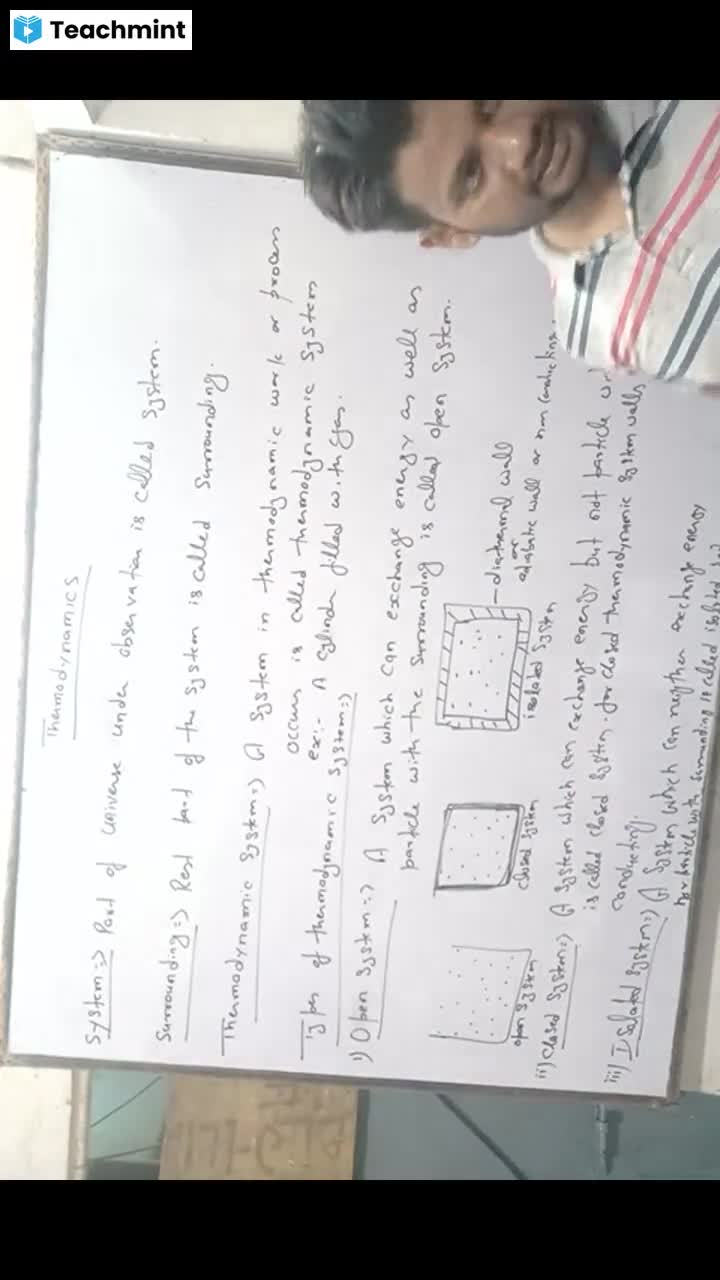 Teachmint
Thermodynamics
System => Part of universe under observation is called System.
Surrounding => Rest part of the System is called Surrounding.
Thermodynamic System => A System in thermodynamic work or process
occurs is called thermodynamic System
ex:- A cylinder filled with gas.
Types of thermodynamic System =>
i) Open System => A System which can exchange energy as well as
particle with the Surrounding is called open System.
open System
closed System
isolated System
diathermal wall
or
adiabatic wall or non conducting.
ii) Closed System => A System which can exchange energy but not particle
is called closed System. for closed thermodynamic System walls
conducting.
iii) Isolated System => A System which can neither exchange energy
nor particle with surrounding is called isolated